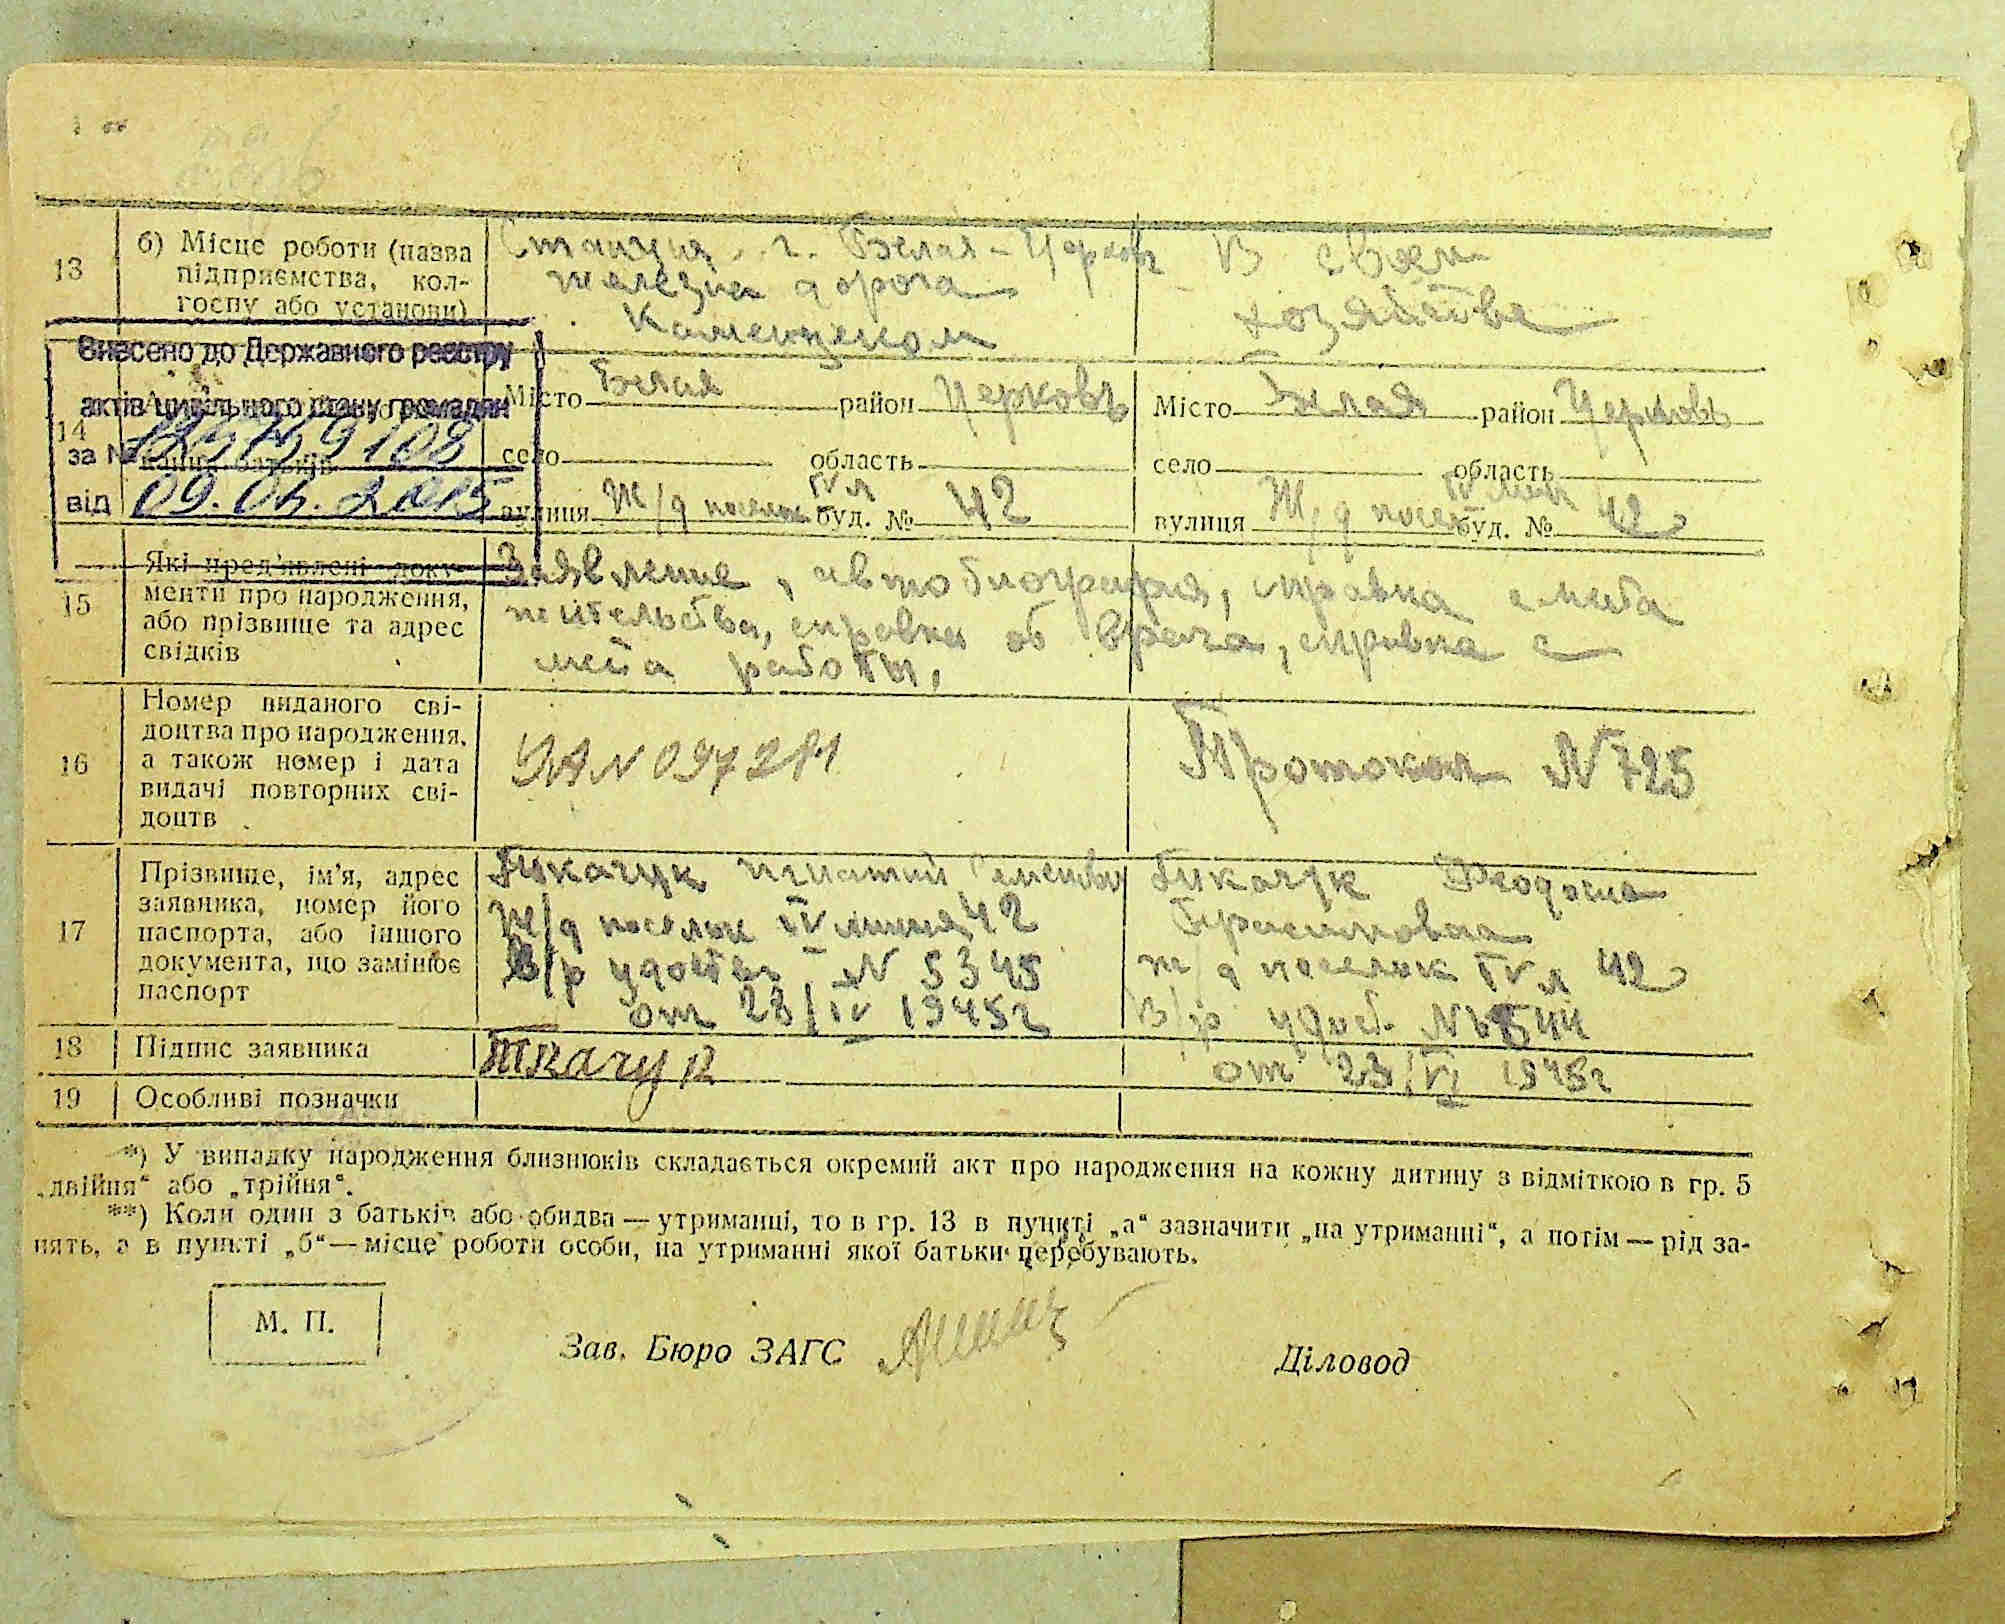 13
б) Місце роботи (назва
підприємства, кол-
госпу або установи)
Станция г. Белая-Церковь
железна дорога
Каменщиком
В своем
хозяйстве
Внесено до Державного реєстру
актів цивільного стану громадян
за №
від 09.04.2015
14
Місто Белая район Церковь
село область
вулиця Ж/д поселок IV л буд. № 42
Місто Белая район Церковь
село область
вулиця Ж/д посел IV лин буд. № 42
15
Які пред'явлені доку-
менти про народження,
або прізвище та адрес
свідків
Заявление, автобиография, справка с места
жительства, справка об врача, справка с
места работы,
16
Номер виданого сві-
доцтва про народження,
а також номер і дата
видачі повторних сві-
доцтв
Протокол N 725
17
Прізвище, ім'я, адрес
заявника, номер його
паспорта, або іншого
документа, що замінює
паспорт
Ткачук Игнатий
Ж/д поселок IV линия 42
В/р удостов N 5345
от 28/IV 1945г
Ткачук Феодосия
ж/д поселок IV л 42
В/р удост. №
от 23/VI 1945г
18
Підпис заявника
Ткачук
19
Особливі позначки
*) У випадку народження близнюків складається окремий акт про народження на кожну дитину з відміткою в гр. 5
„двійня“ або „трійня“.
**) Коли один з батьків або обидва — утриманці, то в гр. 13 в пункті „а“ зазначити „на утриманні“, а потім — рід за-
нять, а в пункті „б“ — місце роботи особи, на утриманні якої батьки перебувають.
М. П.
Зав. Бюро ЗАГС
Діловод